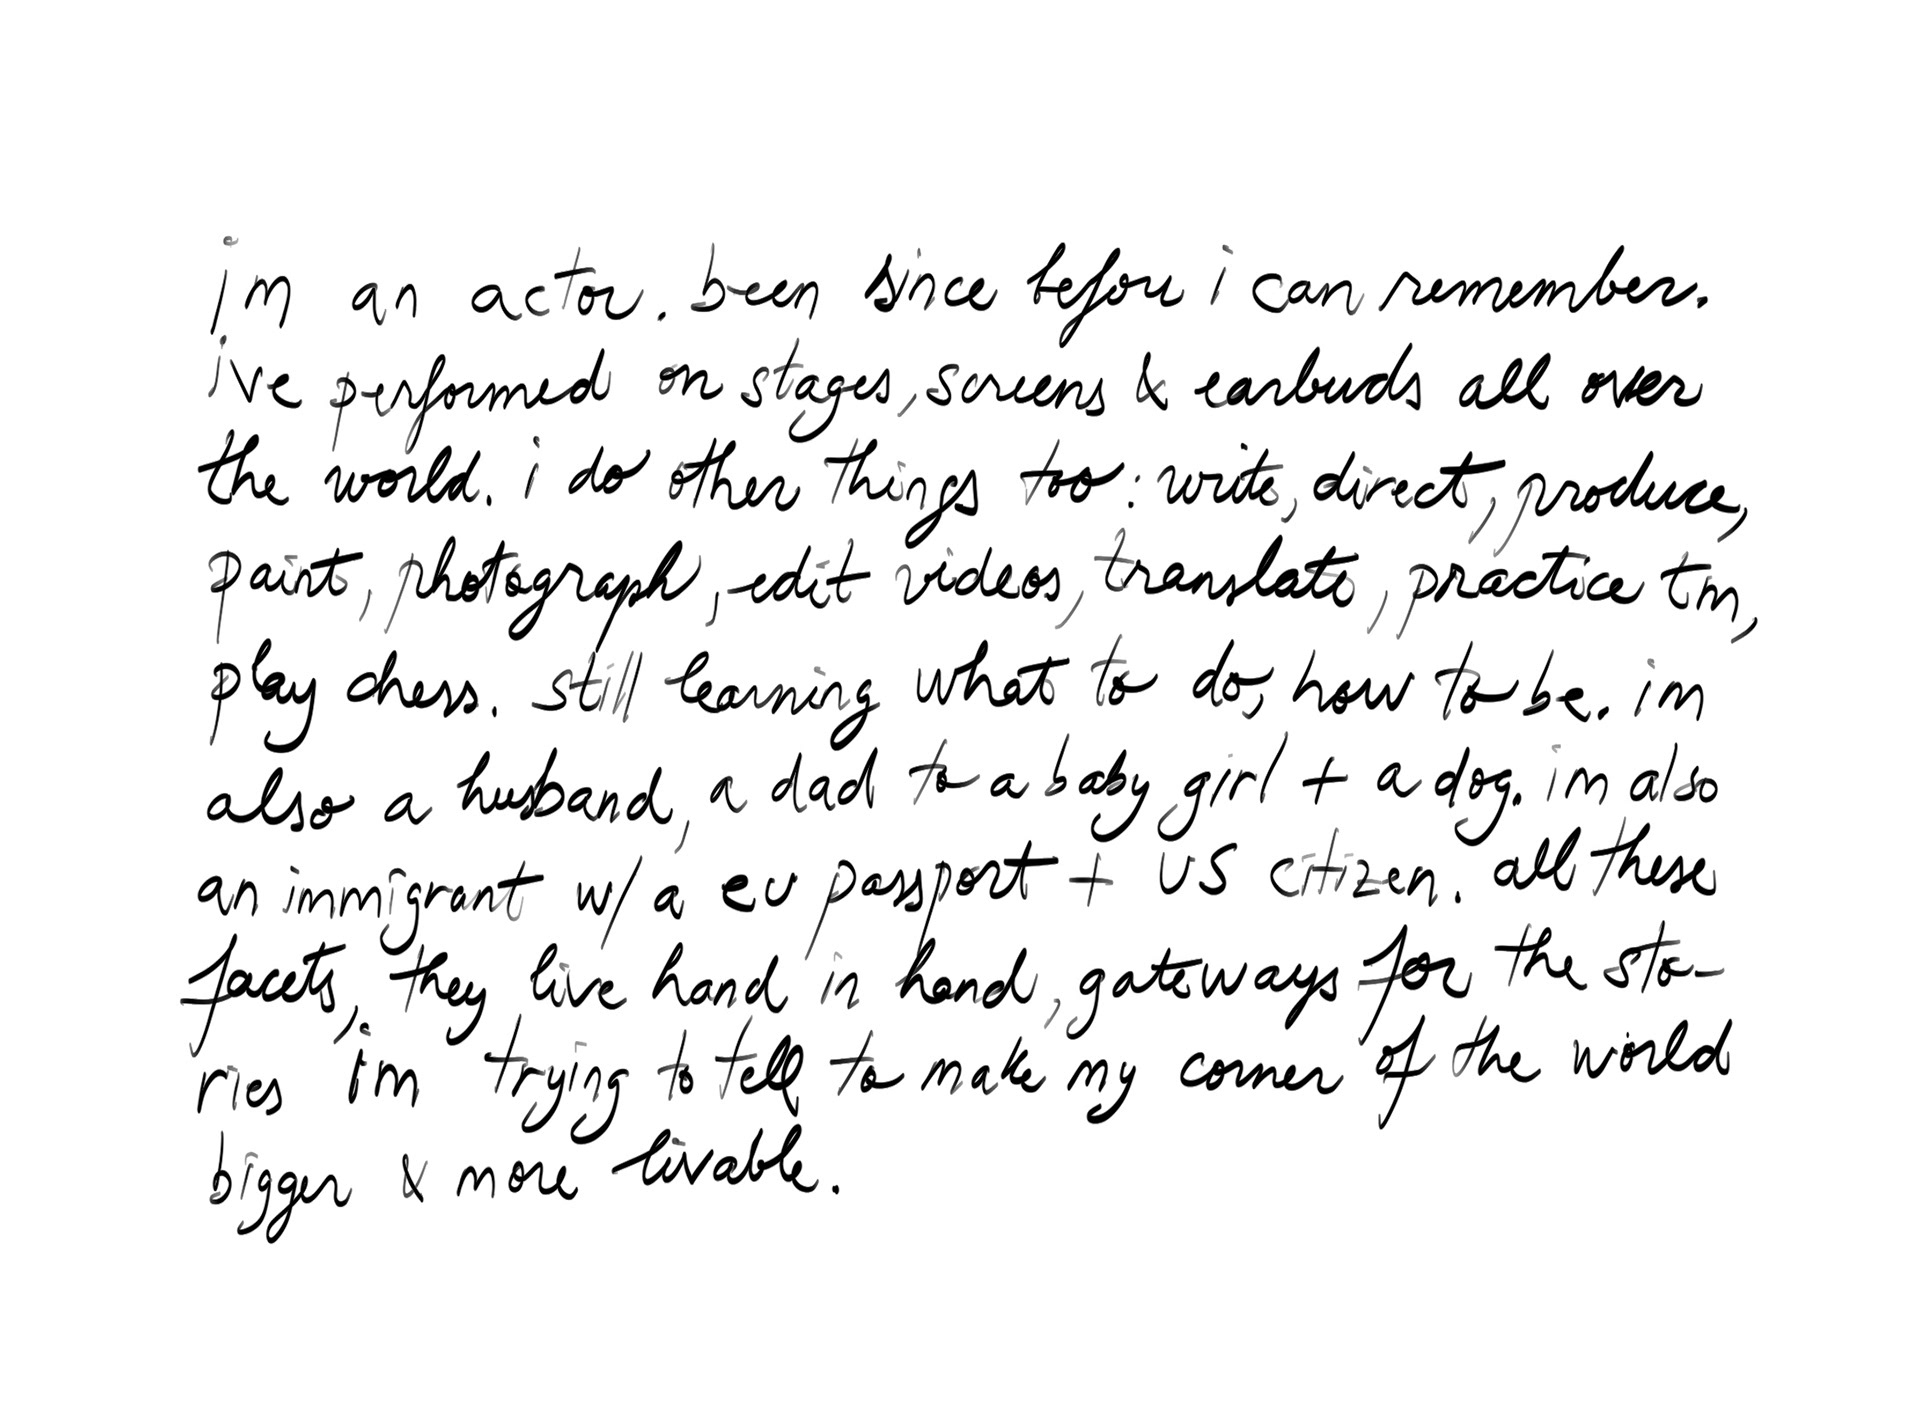 im an actor. been since before i can remember.
ive performed on stages, screens & earbuds all over
the world. i do other things too: write, direct, produce,
paint, photograph, edit videos, translate, practice tm,
play chess. still learning what to do, how to be. im
also a husband, a dad to a baby girl + a dog. im also
an immigrant w/ a eu passport + US citizen. all these
facets, they live hand in hand, gateways for the sto-
ries im trying to tell to make my corner of the world
bigger & more livable.